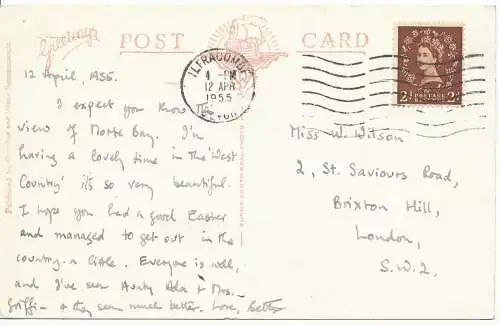 Greetings
POST CARD
ILFRACOMBE
4 - PM
12 APR
1955
DEVON
POSTAGE
2d 2d
12 April, 1955.
I expect you know this
view of Morte Bay. I'm
having a lovely time in the 'West
Country' it's so very beautiful.
I hope you had a good Easter
and managed to get out in the
country a little. Everyone is well,
and I've seen Aunty Ada & Mrs.
Griffin & they seem much better. Love, Betty
Miss W. Wilson
2, St. Saviours Road,
Brixton Hill,
London,
S.W.2.